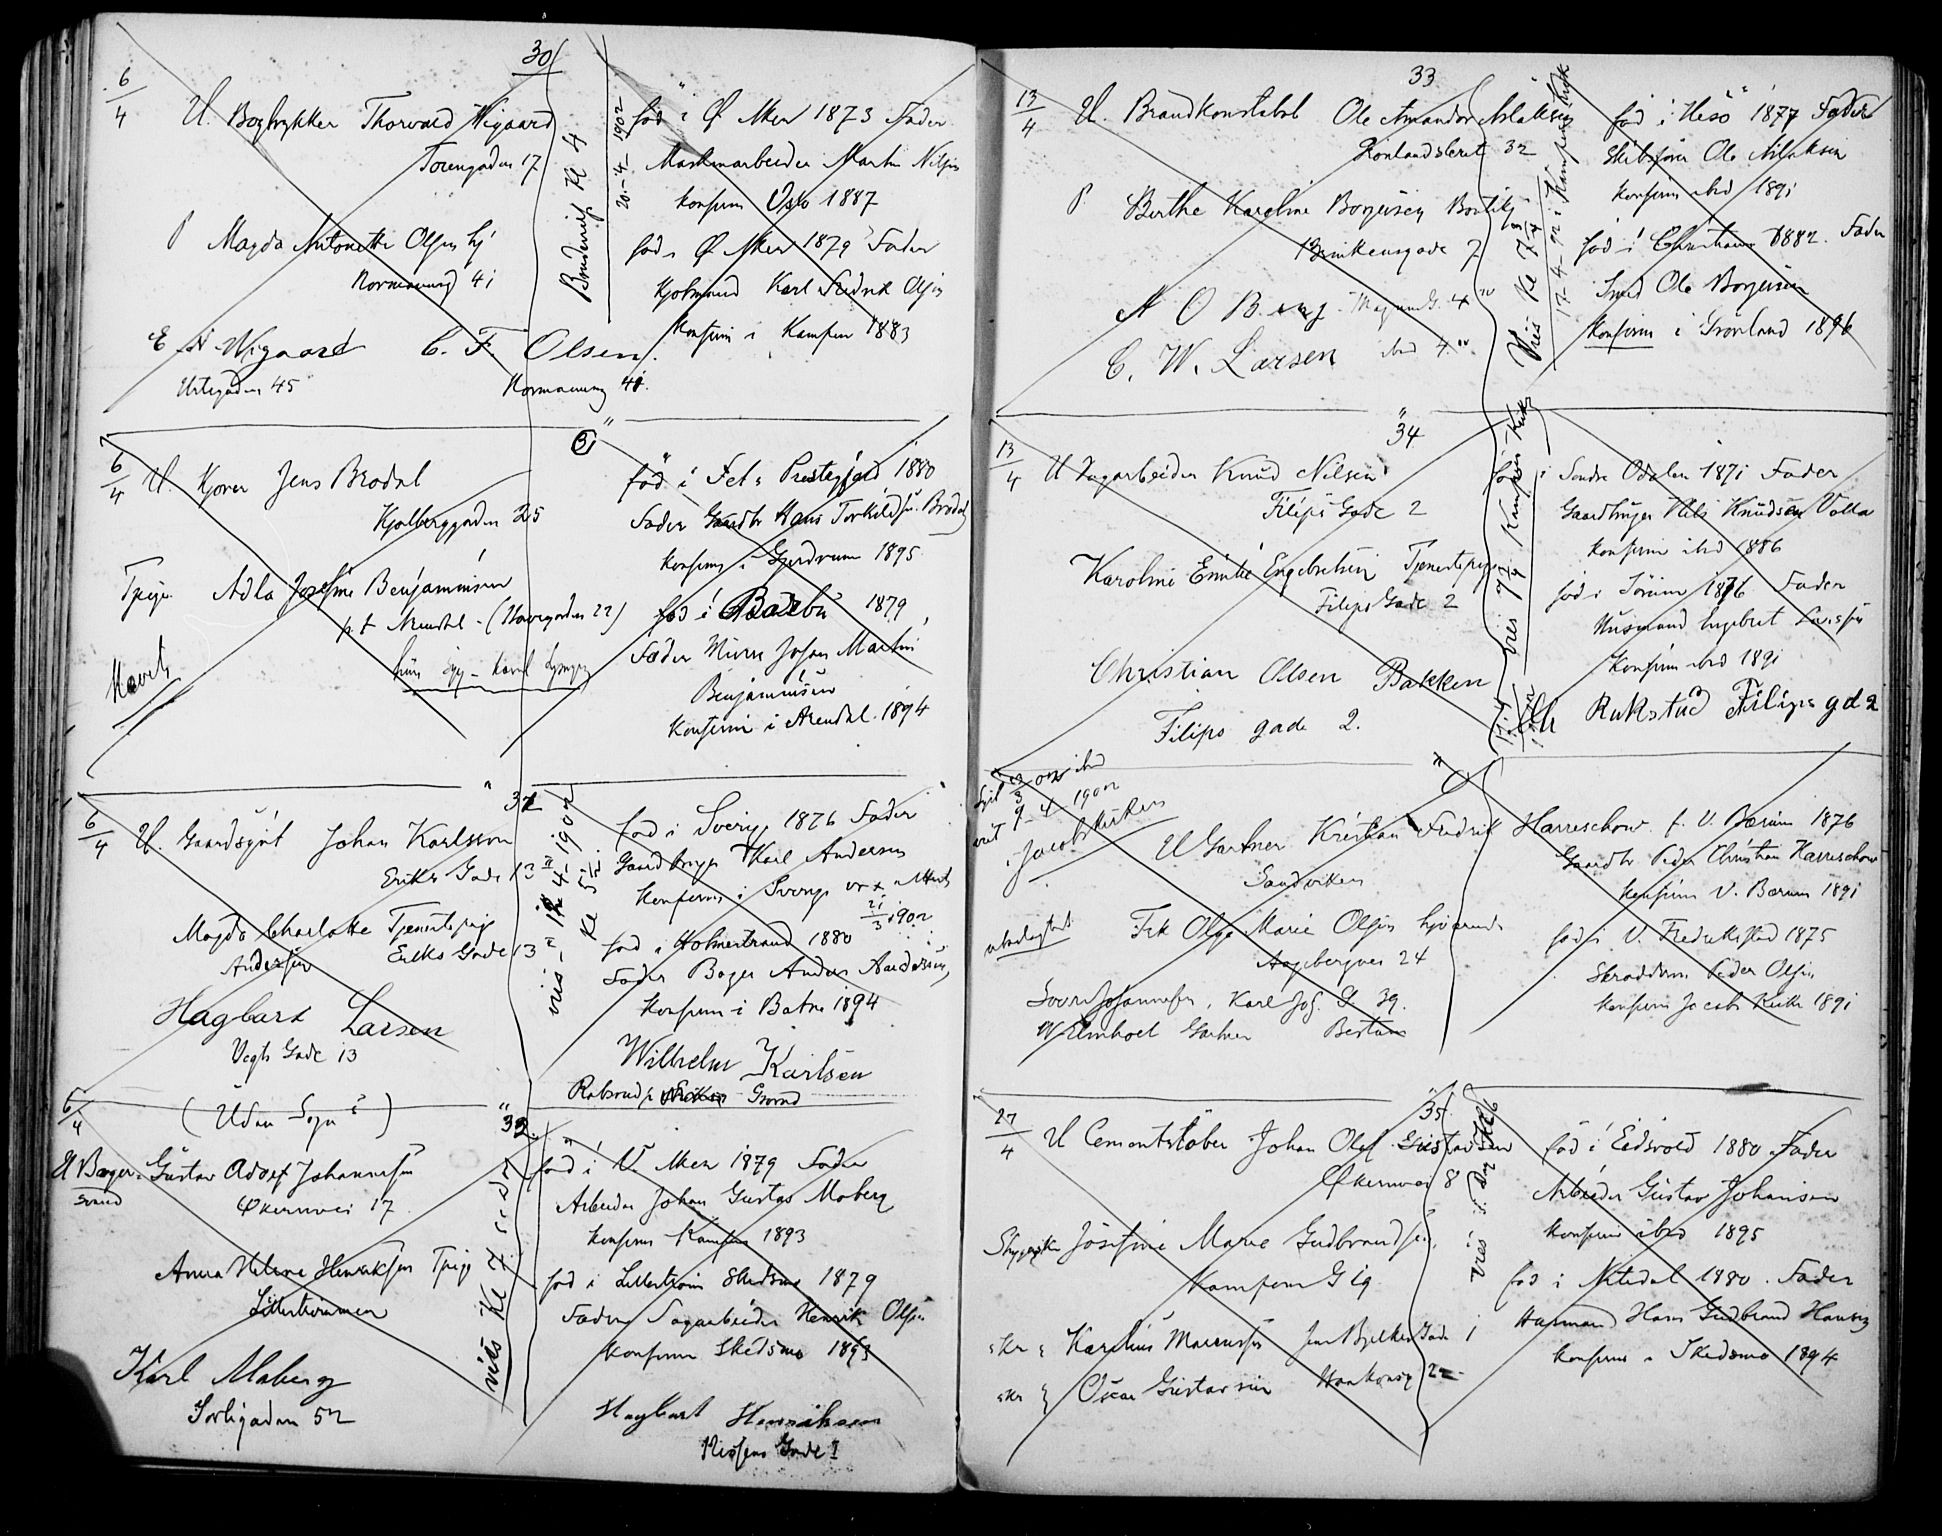 30
6/4 U. Bogtrykker Thorvald Wigaard
Torvgaden 17
P Magda Antonette Olsen hj
Normannsg 41
E A Wigaard C. F. Olsen
Urtegaden 45 Normannsg 41
Kl 4
20-4-1902
fød i Ø Aker 1873 Fader
Maskinarbeider Martin Nilsen
konfirm Oslo 1887
fød i Ø Aker 1879 Fader
Karl Fredrik Olsen
Konfirm i Kampen 1883
31
6/4 U. Kjører Jens Brodal
Kjølberggaden 25
Tpige Adla Josefine Benjaminsen
p t Arendal - (Havregaden 22)
Hævet
fød i Fet s Prestegjeld 1880
Fader Gaardbr Hans Torkildsen Brodal
konfirm i Gjerdrum 1895
fød i Barbu 1879
Fader Murer Johan Martin
Benjaminsen
Konfirm i Arendal 1894
32
6/4 U. Gaardsgut Johan Karlsson
Eriks Gade 13
Magda Charlotte Tjenestepige
Andersen Eriks Gade 13
Hagbart Larsen
Vogts Gade 13
viet 4-1902
Kl 5½
fød i Sverige 1876 Fader
Gaardbruger Karl Andersen
Konfirm i Sverige
21/3 1902
fød i Holmestrand 1880
Fader Bager Anders Andersen
Konfirm i Botne 1894
Wilhelm Karlsen
Grorud
(Uden Sogn)
33
6/4 U Bager Gustav Adolf Johannesen
Svend Økernvei 17
Anna Helene Henriksen Tpige
Lillestrømmen
Karl Moberg
Sorligaden 52
viet Kl 7
fød i V. Aker 1879 Fader
Arbeider Johan Gustav Moberg
konfirm Kampen 1893
fød i Lillestrøm Skedsmo 1879
Fader Sagarbeider Henrik Olsen
Konfirm Skedsmo 1893
Hagbart Henriksen
Nissens Gade 1
33
13/4 U. Brandkonstabel Ole Amandor Aslaksen
Grønlandsleret 32
P Berthe Karoline Børgesen
Brinkensgade 7
A O Berg
C. W. Larsen ibid 4
Viet Kl 7
17-4-02 i Kampens Kirke
fød i Hisø 1877 Fader
Skibsfører Ole Aslaksen
konfirm ibid 1891
fød i Christiania 1882. Fader
Smed Ole Børgesen
Konfirm i Grønland 1896
34
13/4 U Dagarbeider Knud Nilsen
Filips Gade 2
Karoline Emilie Engebretsen Tjenestepige
Filips Gade 2
Christian Olsen Bakken
Filips gade 2.
viet 7½ Kampens Kirke
fød i Søndre Odalen 1871 Fader
Gaardbruger Nils Knudsen Volla
konfirm ibid 1886
fød i Sørum 1876 Fader
Husmand Engebret Larsen
Konfirm ibid 1891
Rukstad Filips gd 2
ibid
viet 9-4 1902
i Jacobskirken
U Gartner Kristian Fredrik Harreschow f. V. Bærum 1876
Sandviken
Gaardbr Peder Christian Harreschow
konfirm V. Bærum 1891
Frk Olga Marie Olsen hjværende
Aagebergveien 24
fød i V. Fredrikstad 1875
Skrædderm Peder Olsen
konfirm Jacobs Kirke 1891
Johannesen, Karl Joh. G 39.
W Elmholt Gartner Bestum
35
27/4 U Cementstøber Johan Olaf Gustavsen
Økernvei 8
Josefine Marie Gudbrandsen
Kampens G 19
skr Karelius Marcussen Jens Bjelkes Gade 1
skr Oscar Gustavsen 22
viet
fød i Eidsvold 1880 Fader
Arbeider Gustav Johansen
konfirm ibid 1895
fød i Nitedal 1880. Fader
Husmand Hans Gudbrand Hansen
konfirm i Skedsmo 1894